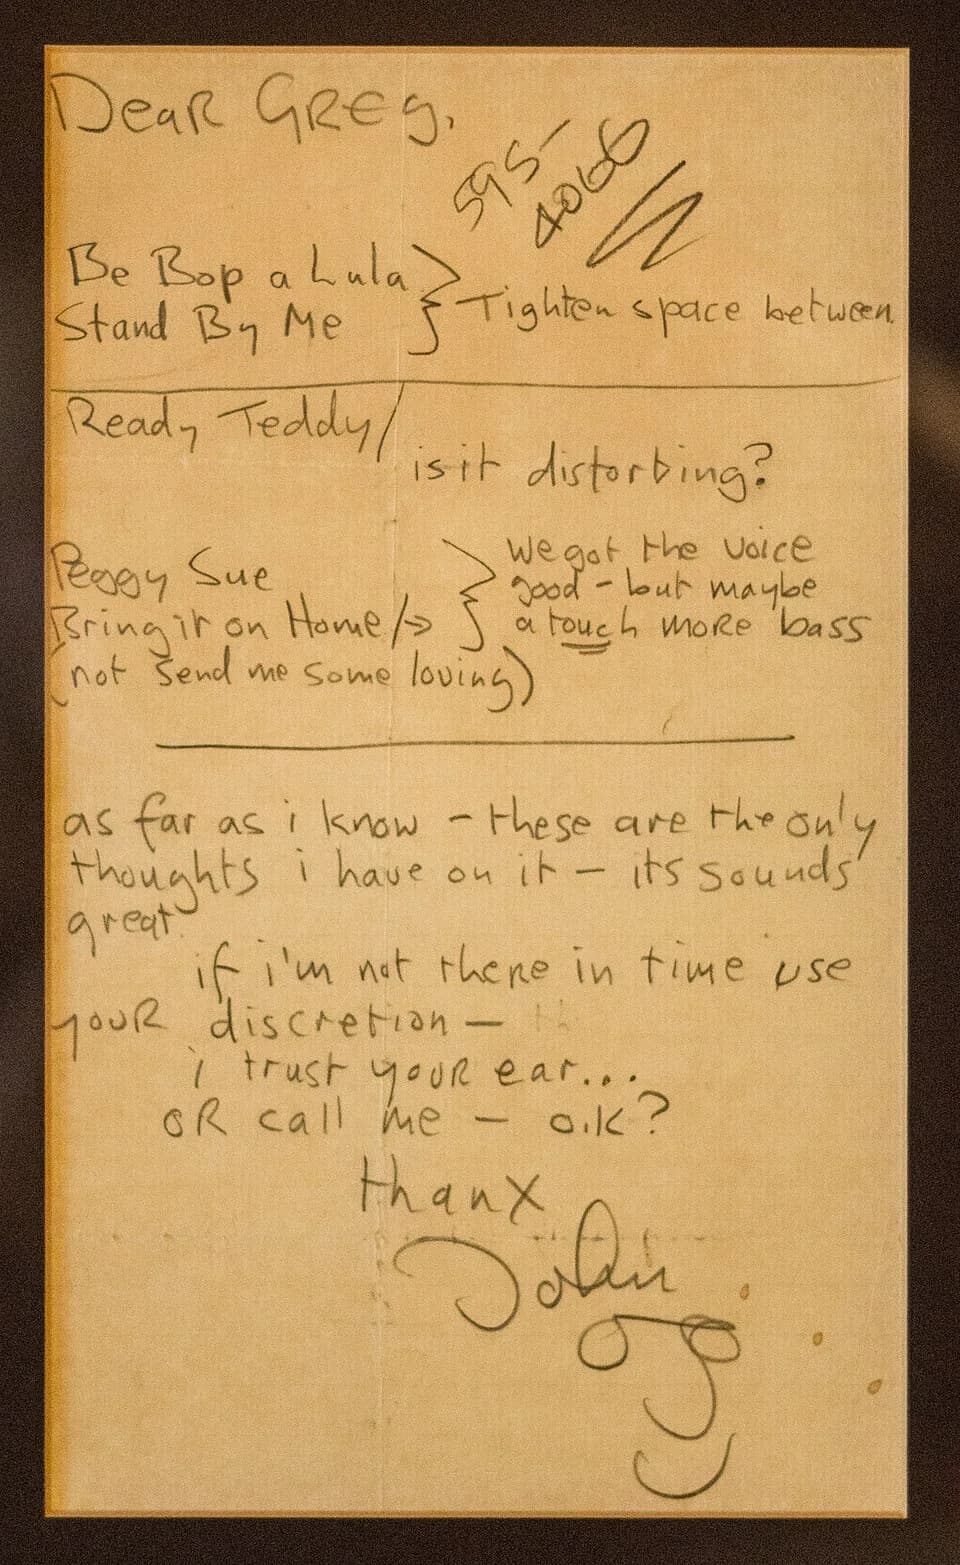 Dear GREG,
595-
4066
Be Bop a Lula
Stand By Me } Tighten space between.
Ready Teddy/
is it distorbing?
Peggy Sue
Bring it on Home/→
(not send me some loving)
} we got the voice
good - but maybe
a touch more bass
as far as i know - these are the only
thoughts i have on it - its sounds
great.
if i'm not there in time use
your discretion -
i trust your ear...
OR call me - o.k?
thanx
John